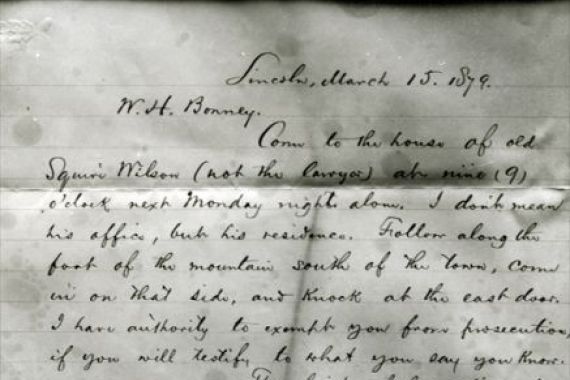 Lincoln, March 15. 1879.
W. H. Bonney.
Come to the house of old
Squire Wilson (not the lawyer) at nine (9)
o'clock next Monday night alone. I don't mean
his office, but his residence. Follow along the
foot of the mountain south of the town, come
in on that side, and knock at the east door.
I have authority to exempt you from prosecution,
if you will testify to what you say you know.